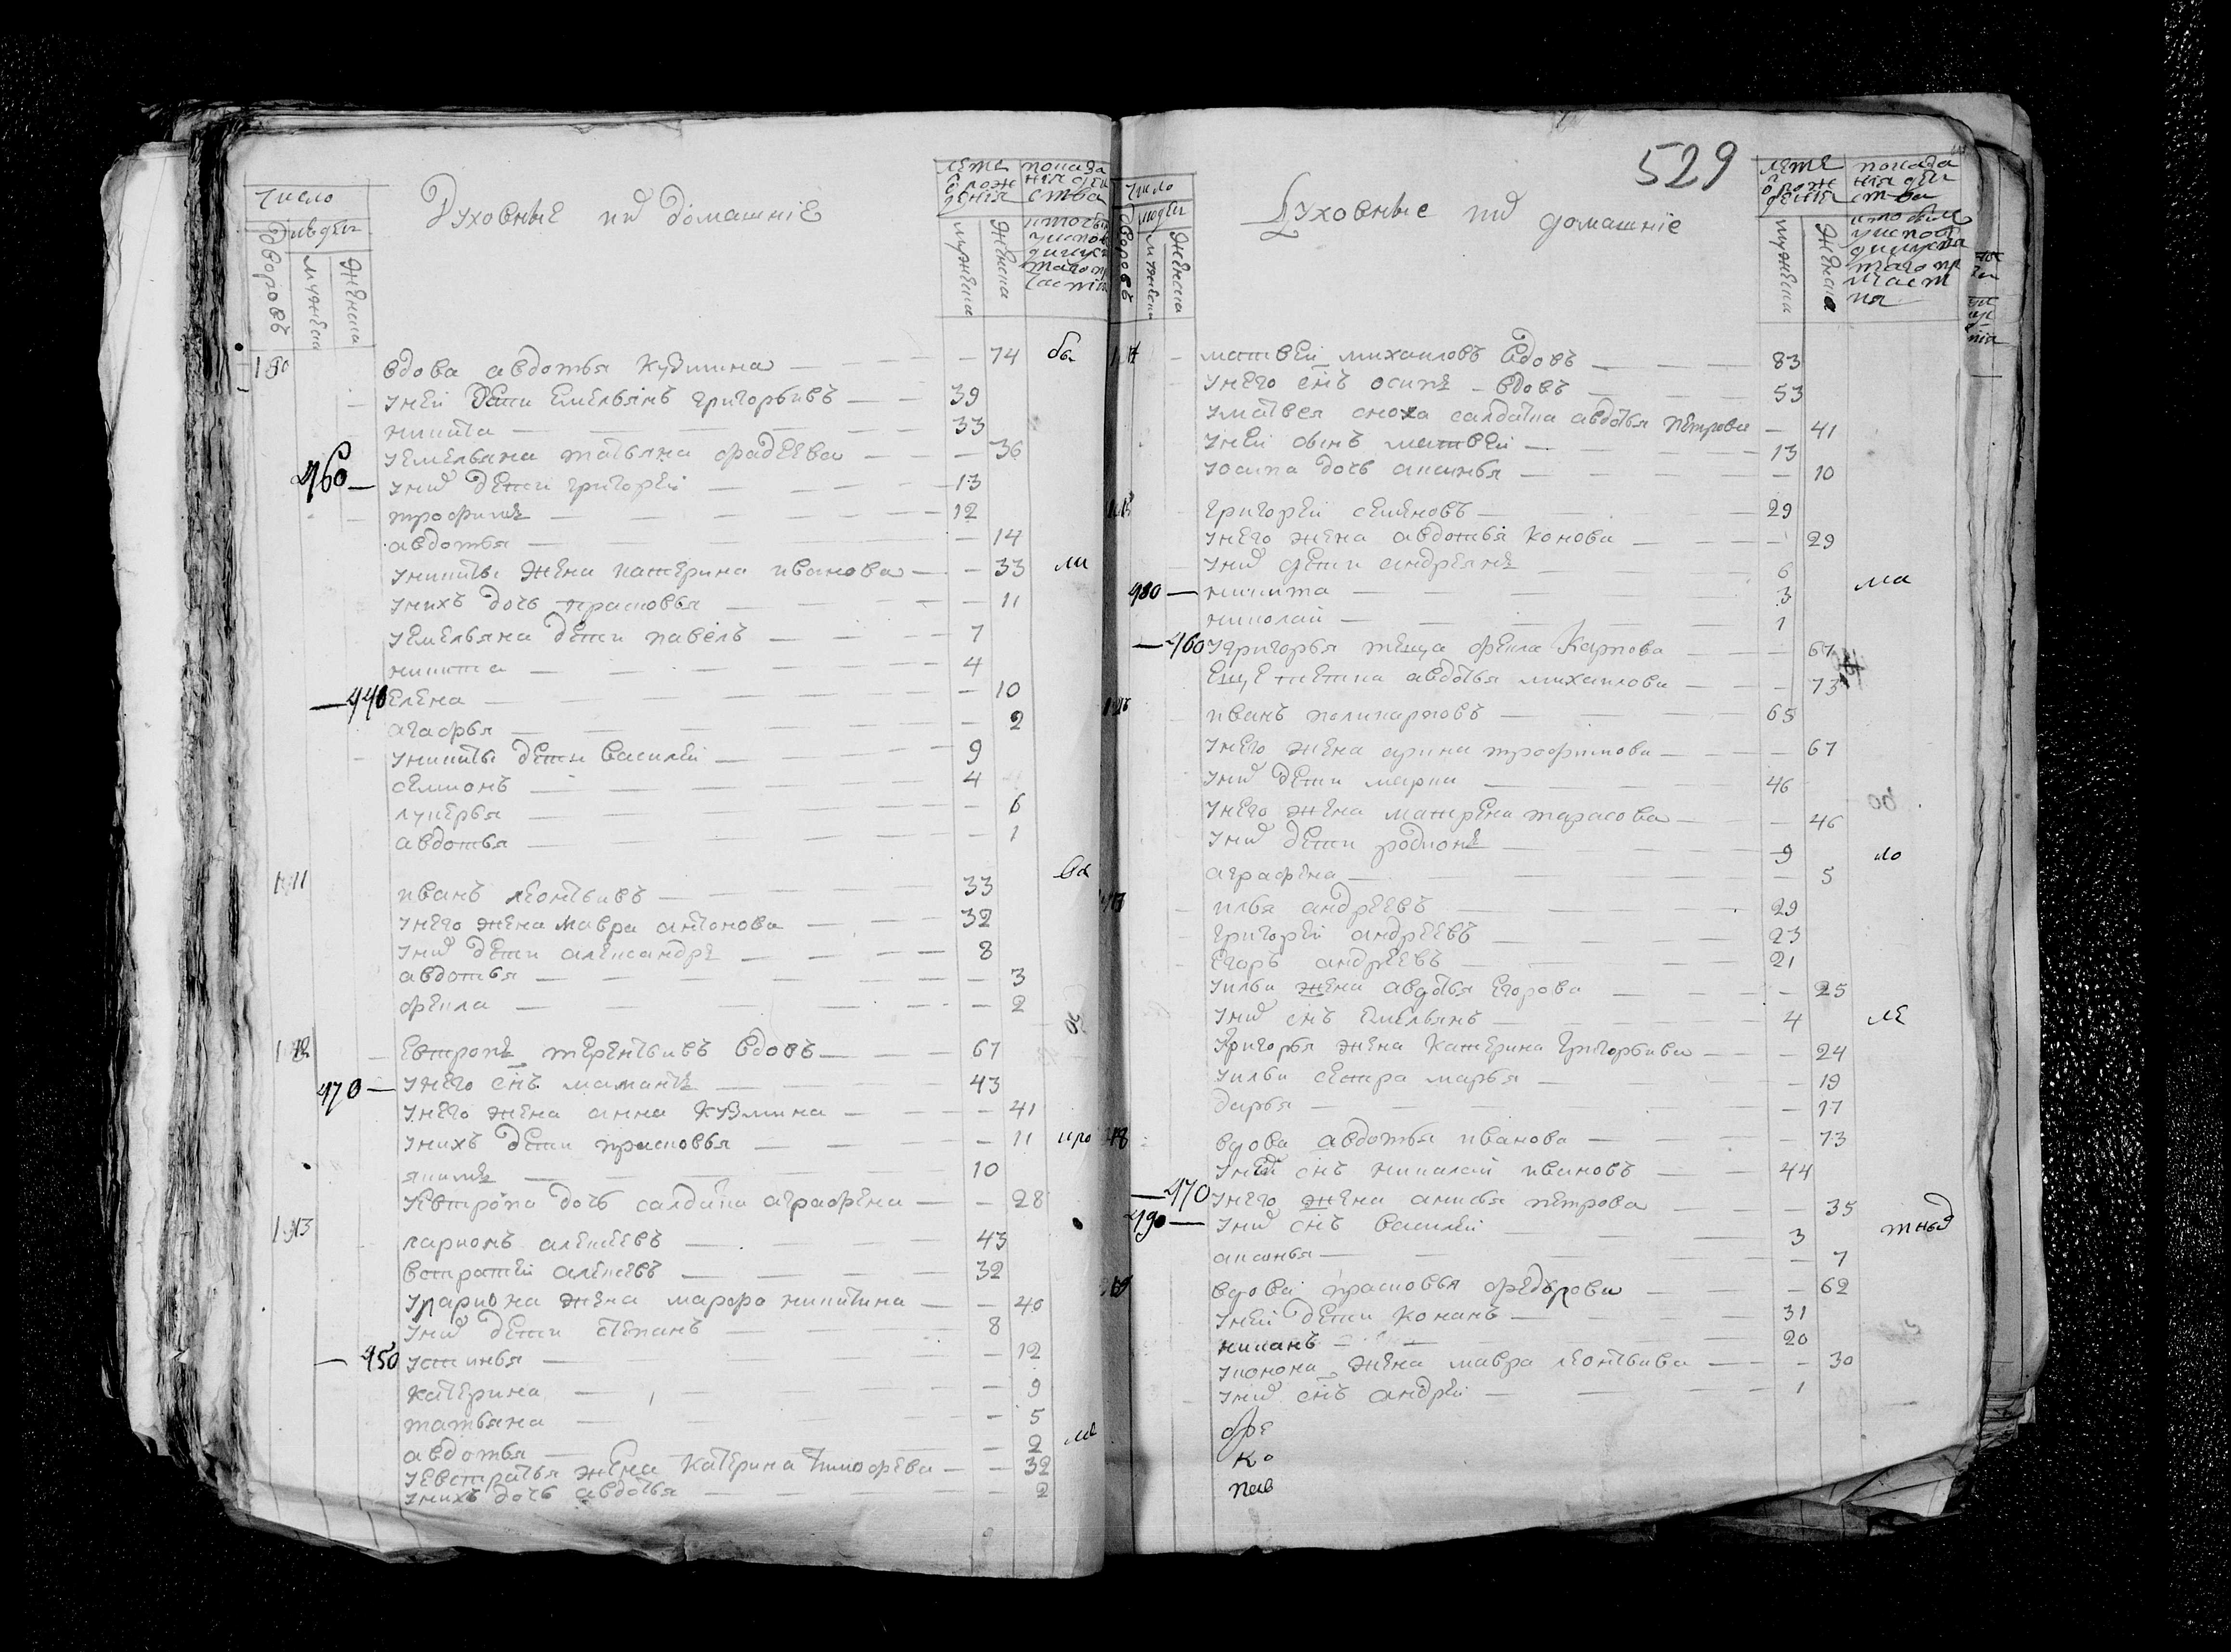 число
людей
дворовъ
мужеска
женска
Духовныѣ ихъ домашнiѣ
лѣта
ѿ рож
денiя
мужеска
женска
показа
нiя дѣи
ства
вдова авдотья кузмина — 74 бы
унеи дѣти емельянъ григорьивъ — 39
никита — 33
уемельяна татьяна фадѣева — 36
460 — уних дѣти григорѣи — 13
трофимъ — 12
авдотья — 14
уникиты жена катерина иванова — 33 ли
унихъ дочь прасковья — 11
уемельяна дѣти павелъ — 7
никита — 4
— 440 елена — 10
агафья — 2
уникиты дѣти василѣи — 9
семионъ — 4
лукерья — 6
авдотья — 1
ва
иванъ леонтьивъ — 33
унего жена мавра антонова — 32
уних дѣти александръ — 8
авдотья — 3
фекла — 2
евтропъ терентьивъ вдовъ — 67
470 — унего снъ мамантъ — 43
унего жена анна кузмина — 41
унихъ дѣти прасковья — 11
якимъ — 10
уевтропа дочь салдатка аграфена — 28
ларионъ алексѣевъ — 43
встратѣи алексѣевъ — 32
уларивона жена марфа никитина — 40
уних дѣти степанъ — 8
— 450 устинья — 12
катерина — 9
татьяна — 5
авдотья — 2
уевстратья жена катерина тимофѣева — 32
унихъ дочь авдотья — 2
529
число
людеи
дворовъ
мужеска
женска
Духовные их домашнiе
лѣтѣ
ѿ рож
денiя
мужеска
женска
показа
нiя дѣи
ства
матвѣи михаиловъ вдовъ — 83
унего снъ осипъ — вдовъ — 53
уматвея сноха салдатка авдотья петрова — 41
унеи сынъ матвѣи — 13
уосипа дочь аксинья — 10
григорѣи семеновъ — 29
унего жена авдотья конова — 29
уних дѣти андреянъ — 6
480 — никита — 3 ма
николаи — 1
— 460 угригорья теща фекла карпова — 67
еще тетка авдотья михаилова — 73
иванъ поликарповъ — 65
унего жена арина трофимова — 67
уних дѣти марки — 46
унего жена матрена тарасова — 46
уних дѣти родионъ — 9 ло
аграфена — 5
илья андрѣевъ — 29
григорѣи андрѣевъ — 23
егоръ андрѣевъ — 21
уильи жена авдотья егорова — 25
уних снъ емельянъ — 4 ле
угригорья жена катерина григорьива — 24
уильи сестра марья — 19
дарья — 17
вдова авдотья иванова — 73
унеи снъ николаи ивановъ — 44
— 470 унего жена анисья петрова — 35
490 — уних снъ василѣи — 3
аксинья — 7
вдова прасковья федорова — 62
унеи дѣти конанъ — 31
никанъ — 20
уконона жена мавра леонтьива — 30
уних снъ андрѣи — 1
офе
ко
пав